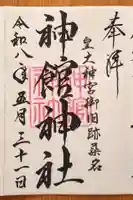 奉拝
皇大神宮御旧跡桑名
神館神社
令和八年五月三十一日